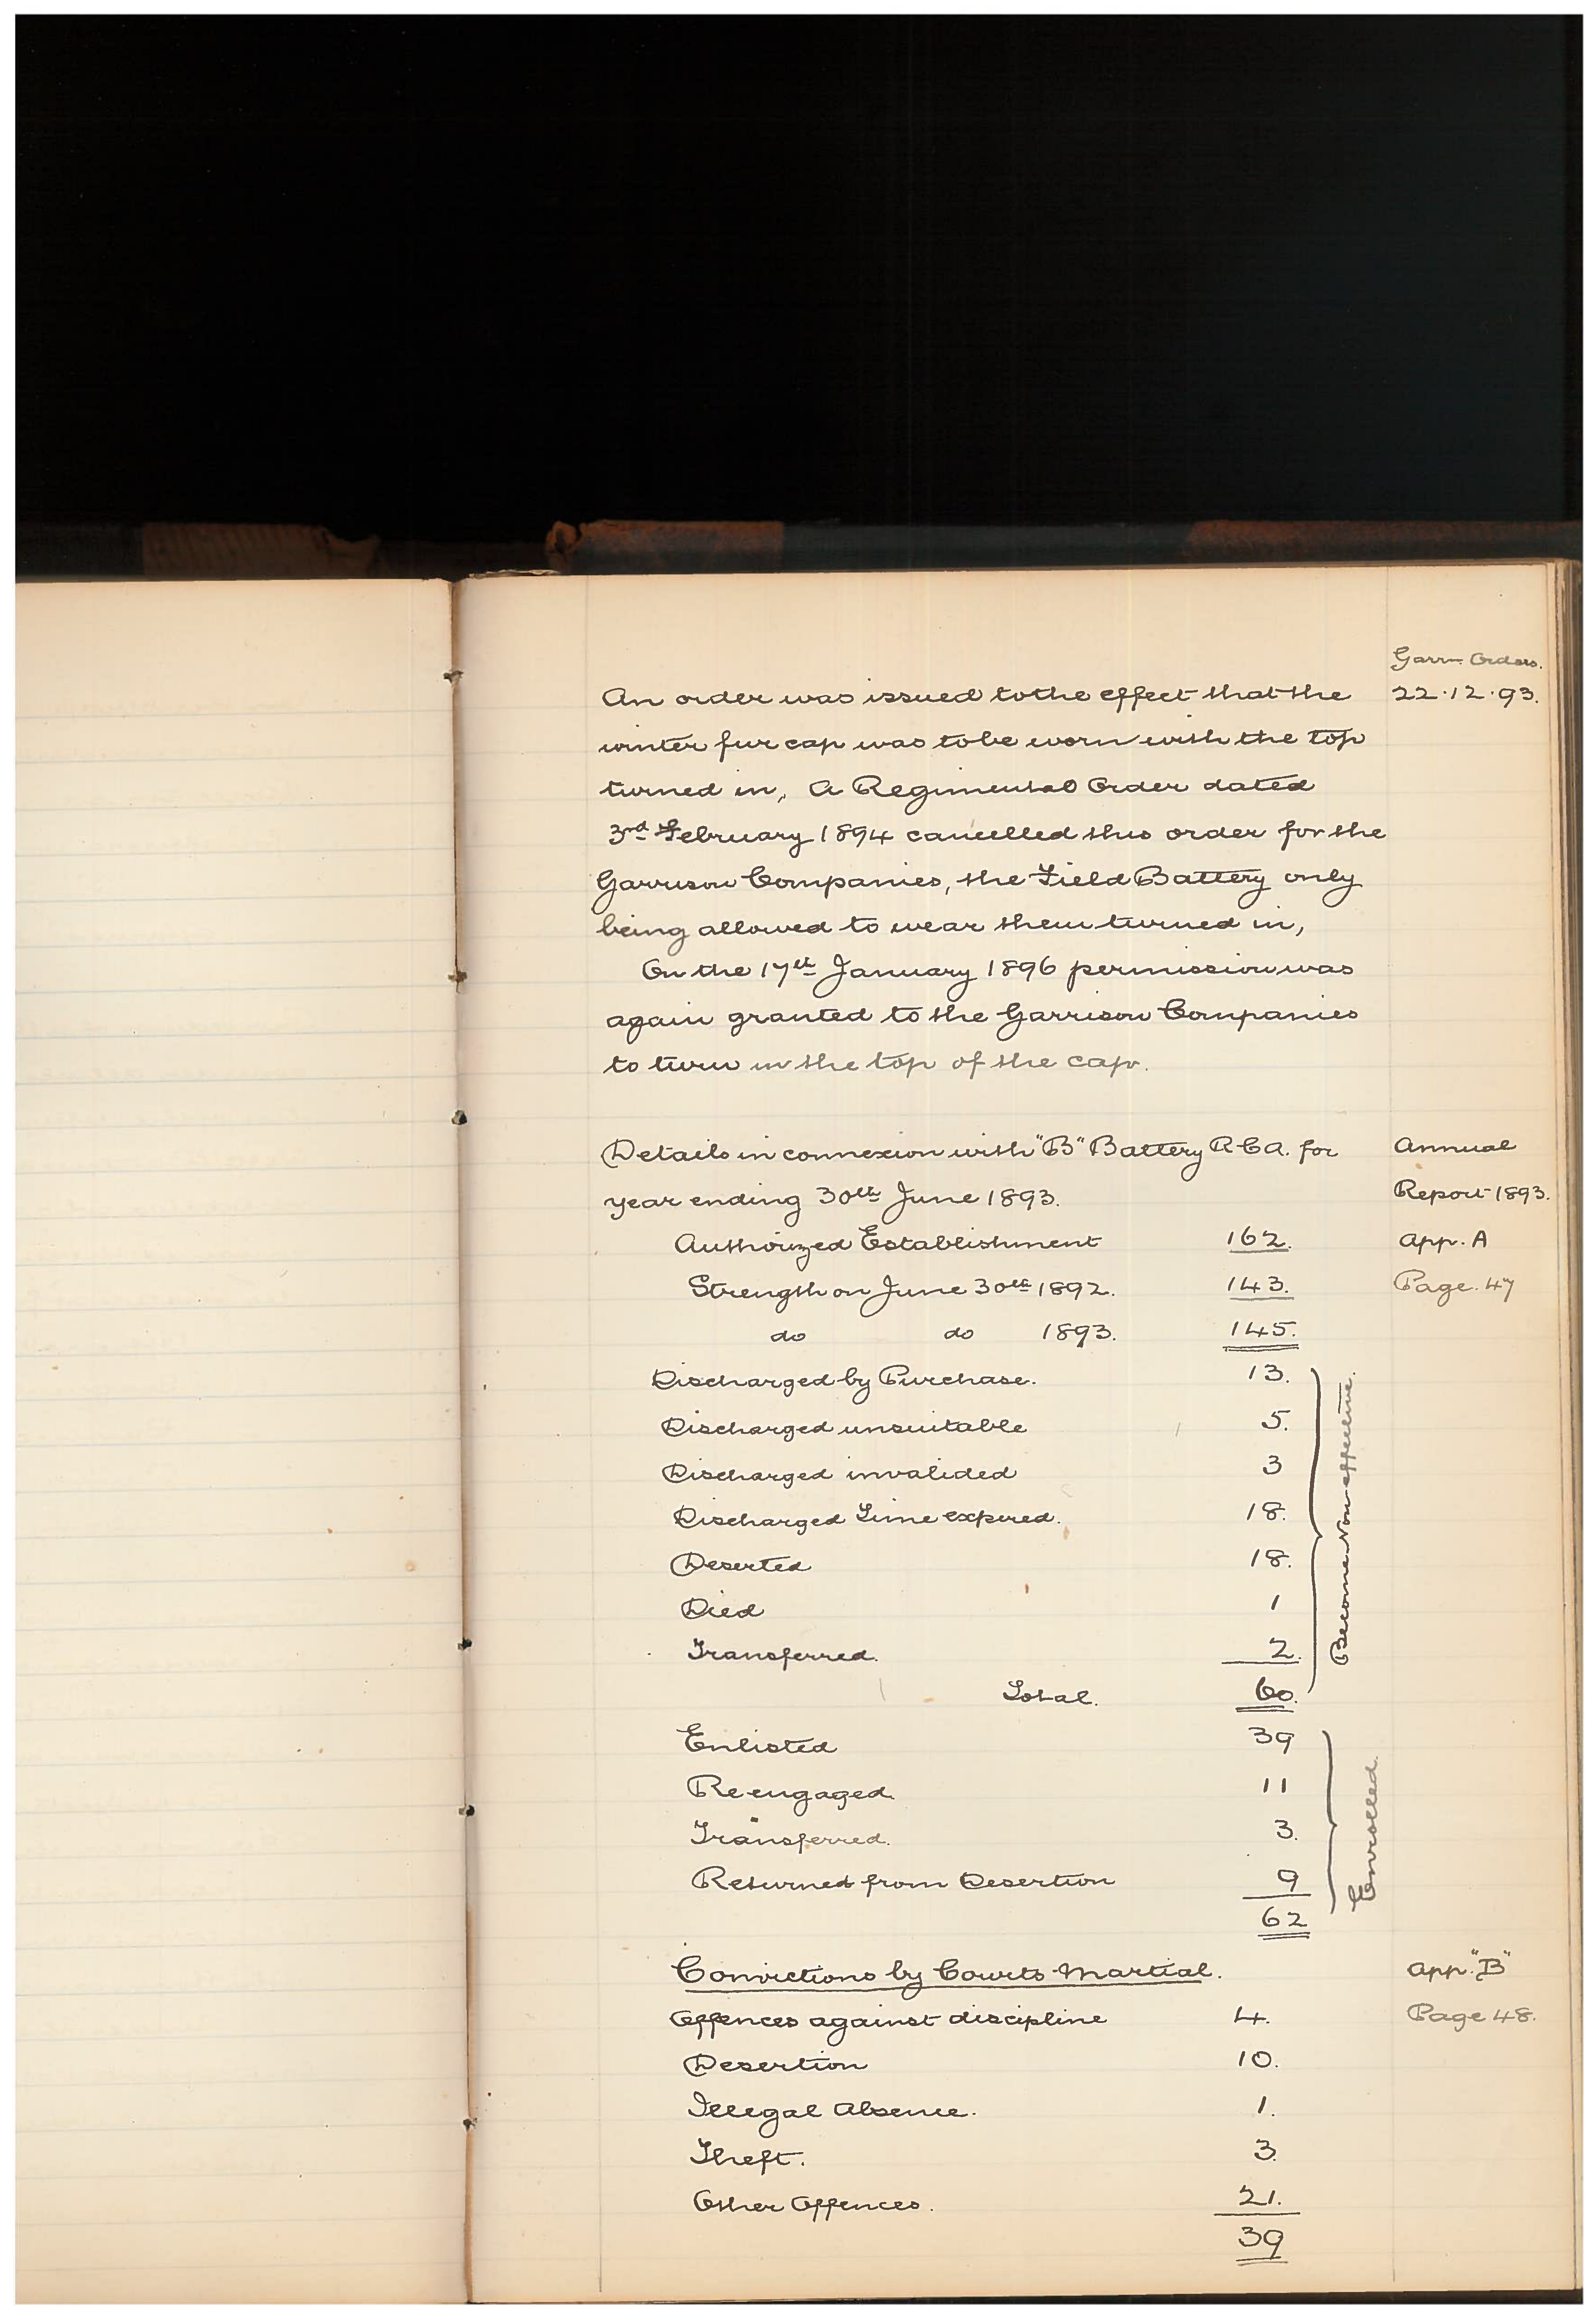 Garrn Orders.
An order was issued to the effect that the 22.12.93.
winter fur cap was to be worn with the top
turned in, A Regimental Order dated
3rd February 1894 cancelled this order for the
Garrison Companies, the Field Battery only
being allowed to wear them turned in,
On the 17th January 1896 permission was
again granted to the Garrison Companies
to turn in the top of the cap.
Details in connexion with "B" Battery R C A. for Annual
year ending 30th June 1893. Report 1893.
Authorized Establishment 162. App. A
Strength on June 30th 1892. 143. Page. 47
do do 1893. 145.
Discharged by Purchase. 13.
Discharged unsuitable 5.
Discharged invalided 3
Discharged Time expired. 18.
Deserted 18.
Died 1
Transferred. 2.
Become Non-effective.
Total. 60.
Enlisted 39
Re engaged. 11
Transferred. 3.
Returned from Desertion 9
Enrolled.
62
Convictions by Courts Martial. App. "B"
Offences against discipline 4. Page 48.
Desertion 10.
Illegal Absence. 1.
Theft. 3.
Other Offences. 21.
39